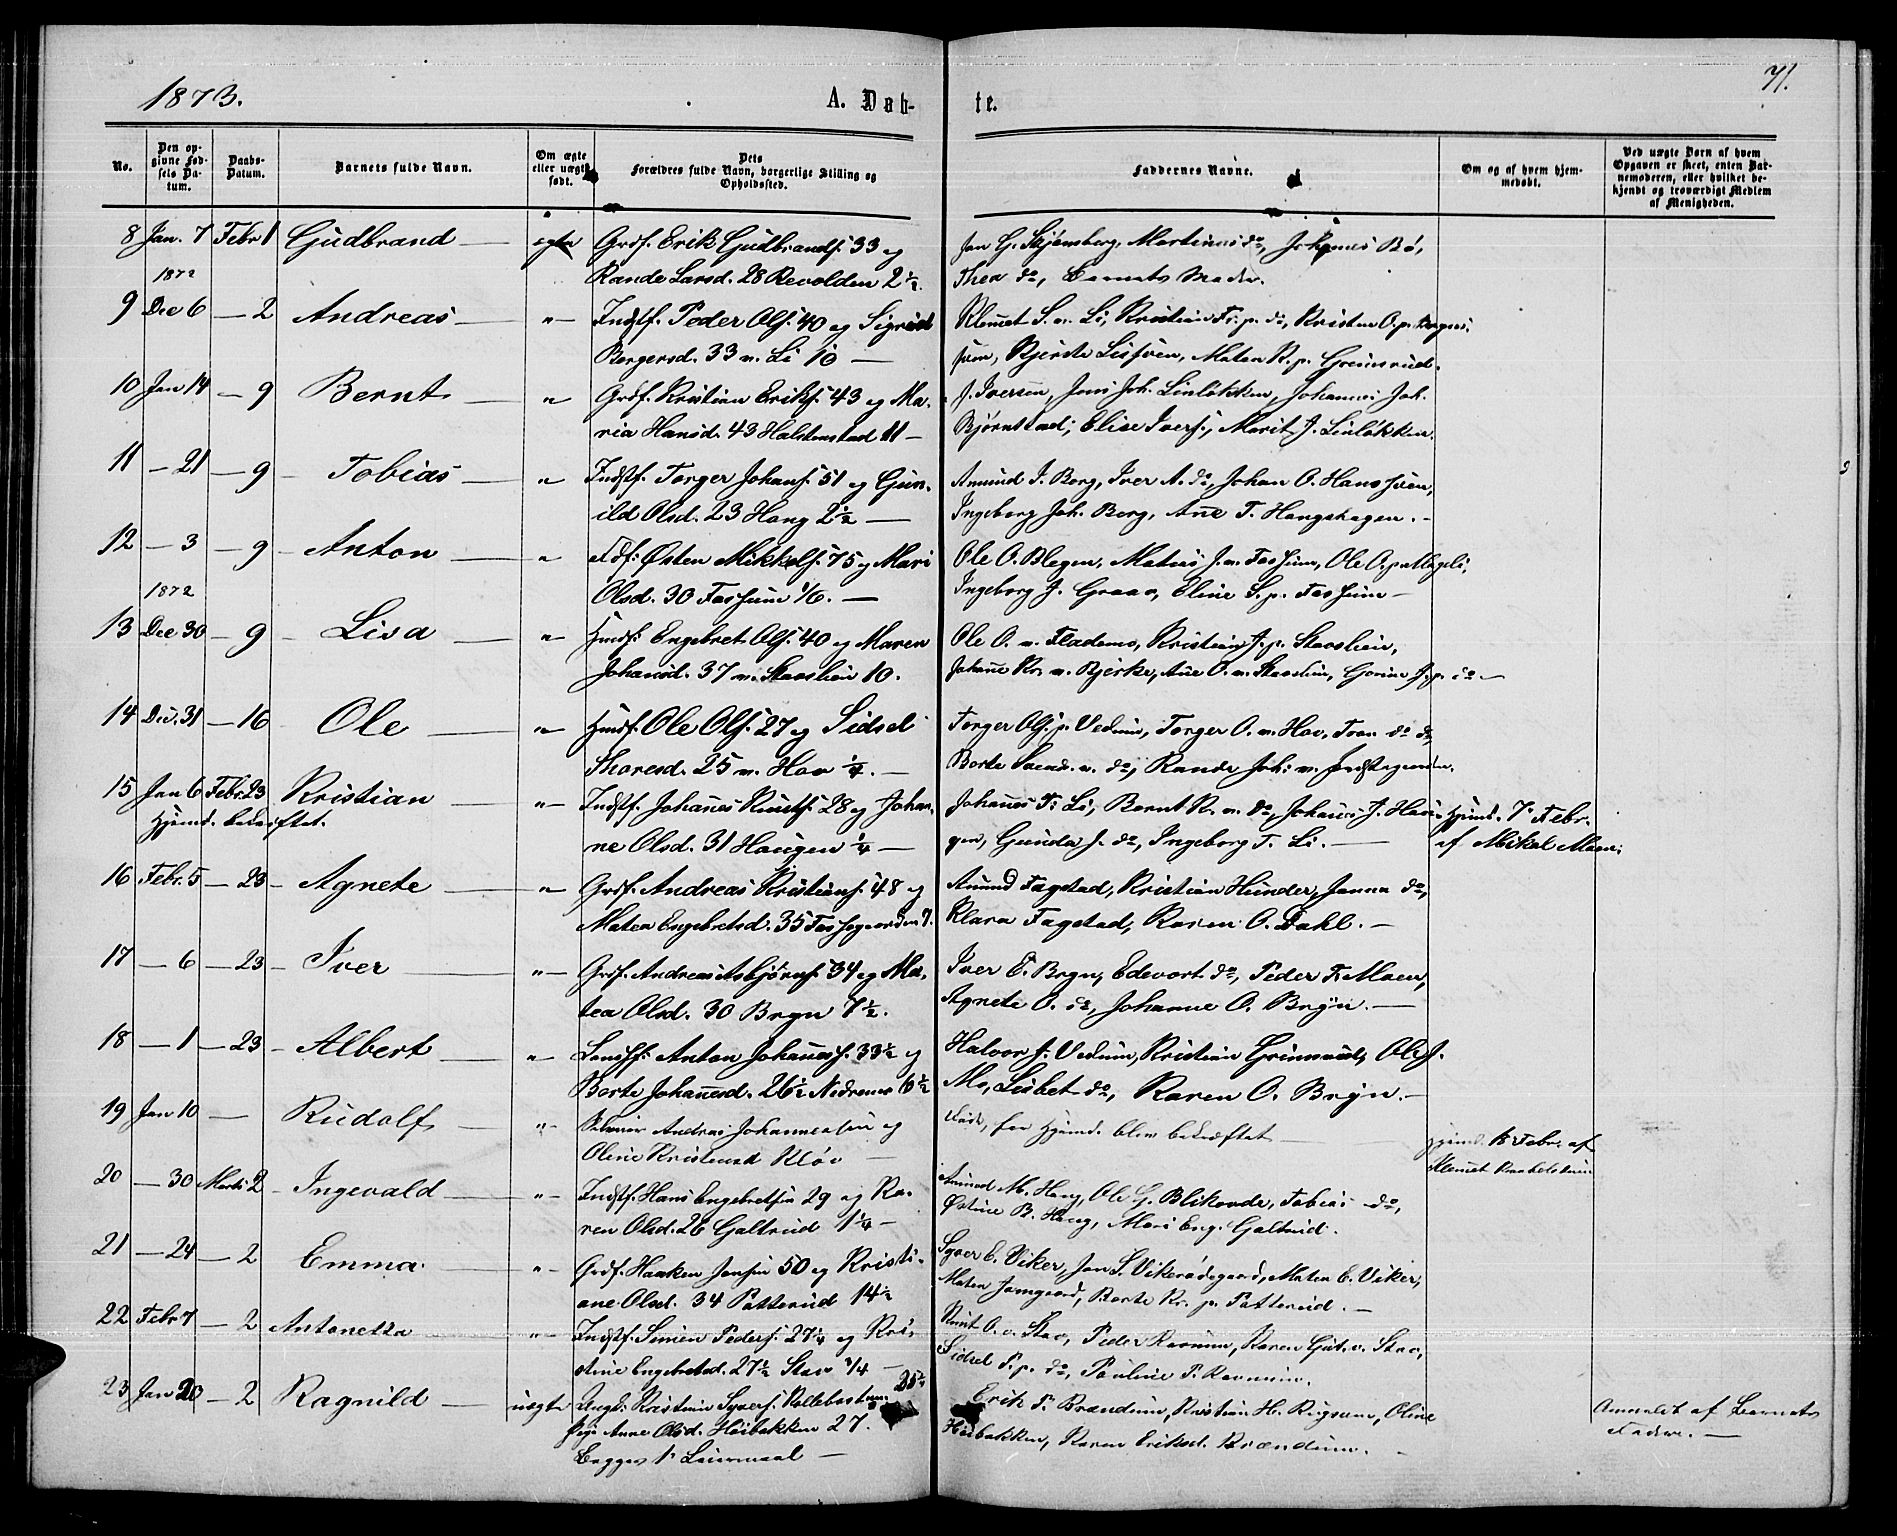 1873.
A. Døb-
te.
71.
No.
Den op-
givne Fød-
sels Da-
tum.
Daabs-
Datum.
Barnets fulde Navn.
Om ægte
eller uægte
født.
Dets
Forældres fulde Navn, borgerlige Stilling og
Opholdssted.
Faddernes Navne.
Om og af hvem hjem-
medøbt.
Ved uægte Børn af hvem
Opgaven er skeet, enten Bar-
nemoderen, eller hvilket be-
kjendt og troværdigt Medlem
af Menigheden.
8 Jan. 7 Febr 1 Gudbrand — ægte Grdf. Erik Gudbrandf. 33 og
Rande Larsd. 28 Revolden 2½.
Jan G. Stjernberg, Martinus do, Johannes Bø,
Thea do, Barnets Moder.
1872
9 Dec 6 — 2 Andreas — " — Indstf. Peder Olsf. 40 og Sigrid
Borgersd. 33 n. Li 10 —
Klemet S. n. Li, Kristian Fr. p. do, Kristen O. p.
Kjerste Lisfven, Maten K. p. Grimsrud.
10 Jan 14 — 9 Bernt — " Grdf. Kristian Eriksf. 43 og Ma-
ria Hansd. 43 Halstenstad 11 —
J. Iversen, Jens Joh. Linløkken, Johannes Joh.
Bjørnstad, Elise Iversf., Marit J. Linløkken.
11 — 21 — 9 — Tobias — " Indstf. Torger Johansf. 51 og Gun-
ild Olsd. 23 Haug 2½ —
Amund J. Berg, Iver A. do, Johan O. Hansfven,
Ingeborg Joh. Berg, Ane T. Haugshagen. —
12 — 3 — 9 — Anton — " Østen Mikkelsf. 75 og Mari
Olsd. 30 Fossum 1/6. —
Ole O. Blegen, Matias J. n. Fossum, Ole O. p. Mageli,
Ingeborg J. Graao, Eline S. p. Fossum —
1872
13 Dec 30 — 9 — Lisa — " Hmdf. Engebret Olsf. 40 og Maren
Johansd. 37 n. Stavslien 10.
Ole O. n. Flademo, Kristian J. p. Stavslien,
Johanne Kr. n. Bjerke, Ane O. n. Stavslien, Gorine J. p. do —
14 Dec. 31 — 16 Ole — " Hmdf. Ole Olsf. 27 og Sidsel
Thoresd. 25 n. Hov ¼. —
Torger Olsf. p. Vedum, Torger O. n. Hov, Tron do do,
Berte Svend. n. do, Rande Joh. n.
15 Jan 6 Febr. 23 Kristian — " — Indstf. Johanes Knutsf. 28 og Johan-
Hjemd. bekræftet.
ne Olsd. 31 Haugen ¼ —
Johannes T. Li, Bernt K. n. do, Johannes J. Hau-
gen, Gunda J. do, Ingeborg T. Li. —
Hjemd. 7 Febr.
af Mikel Moen.
16 Febr. 5 — 23 — Agnete — " Grdf. Andreas Kristiansf. 48 og
Matea Engebretsd. 35 Fossegaarden 7.
Amund Fagstad, Kristian Hunder, Janna do,
Klara Fagstad, Karen O. Dahl. —
17 — 6 — 23 — Iver — " — Grdf. Andreas Asbjørnsf. 34 og Ma-
tea Olsd. 30 Bryn 7½.
Iver E. Bryn, Edevart do, Peder F. Moen,
Agnete O. do, Johanne O. Bryn. —
18 — 1 — 23 — Albert — " Anton Johanesf. 33½ og
Berte Johanesd. 26½ Nedremo 6½
Halvor J. Vedum, Kristian Grimsrud, Ole J.
Mo, Lisbet do, Karen O. Bryn. —
19 Jan 10 — Rudolf — " — Andreas Johannessen og
Oline Kristensd Kløv —
Død, før Hjemd. blev bekræftet —
Hjemd. 18 Febr. af
Klemet
20 — 30 Marts 2 — Ingevald — " — Indstf. Hans Engebretsen 29 og Ka-
ren Olsd. 26 Galterud 1¼ —
Amund M. Haug, Ole G. Blikovde, Tobias do,
Østine B. Haug, Mari Eng. Galterud.
21 — 24 — 2 Emma. — " — Grdf. Haaken Jensen 50 og Kristi-
ane Olsd. 34 Patterud 14½
Syver E. Viker, Jan S. Vikerødegaard, Maten E. Viker,
Maten Jamgaard, Berte Kr. p. Patterud. —
22 Febr 7 — 2 Antonetta — " — Indstf. Simen Pedersf. 27¼ og Kri-
stine Engebretsd. 27½ Stav ¼ —
Knut O. v. Stav, Peder Ravnum, Karen Gut. v. Stav,
Sidsel P. p. do, Pauline P. Ravnum.
23 Jan 20 — 2 Ragnild — uægte Ungk. Kristian Syversf. Kallebastuen 25½
Pige Anne Olsd. Høibakken 27.
Begges 1 Leiermaal —
Erik P. Brændum, Kristian H. Rugsveen, Oline
Høibakken, Karen Eriksd. Brændum. —
Anmeldt af Barnets
Fader. —